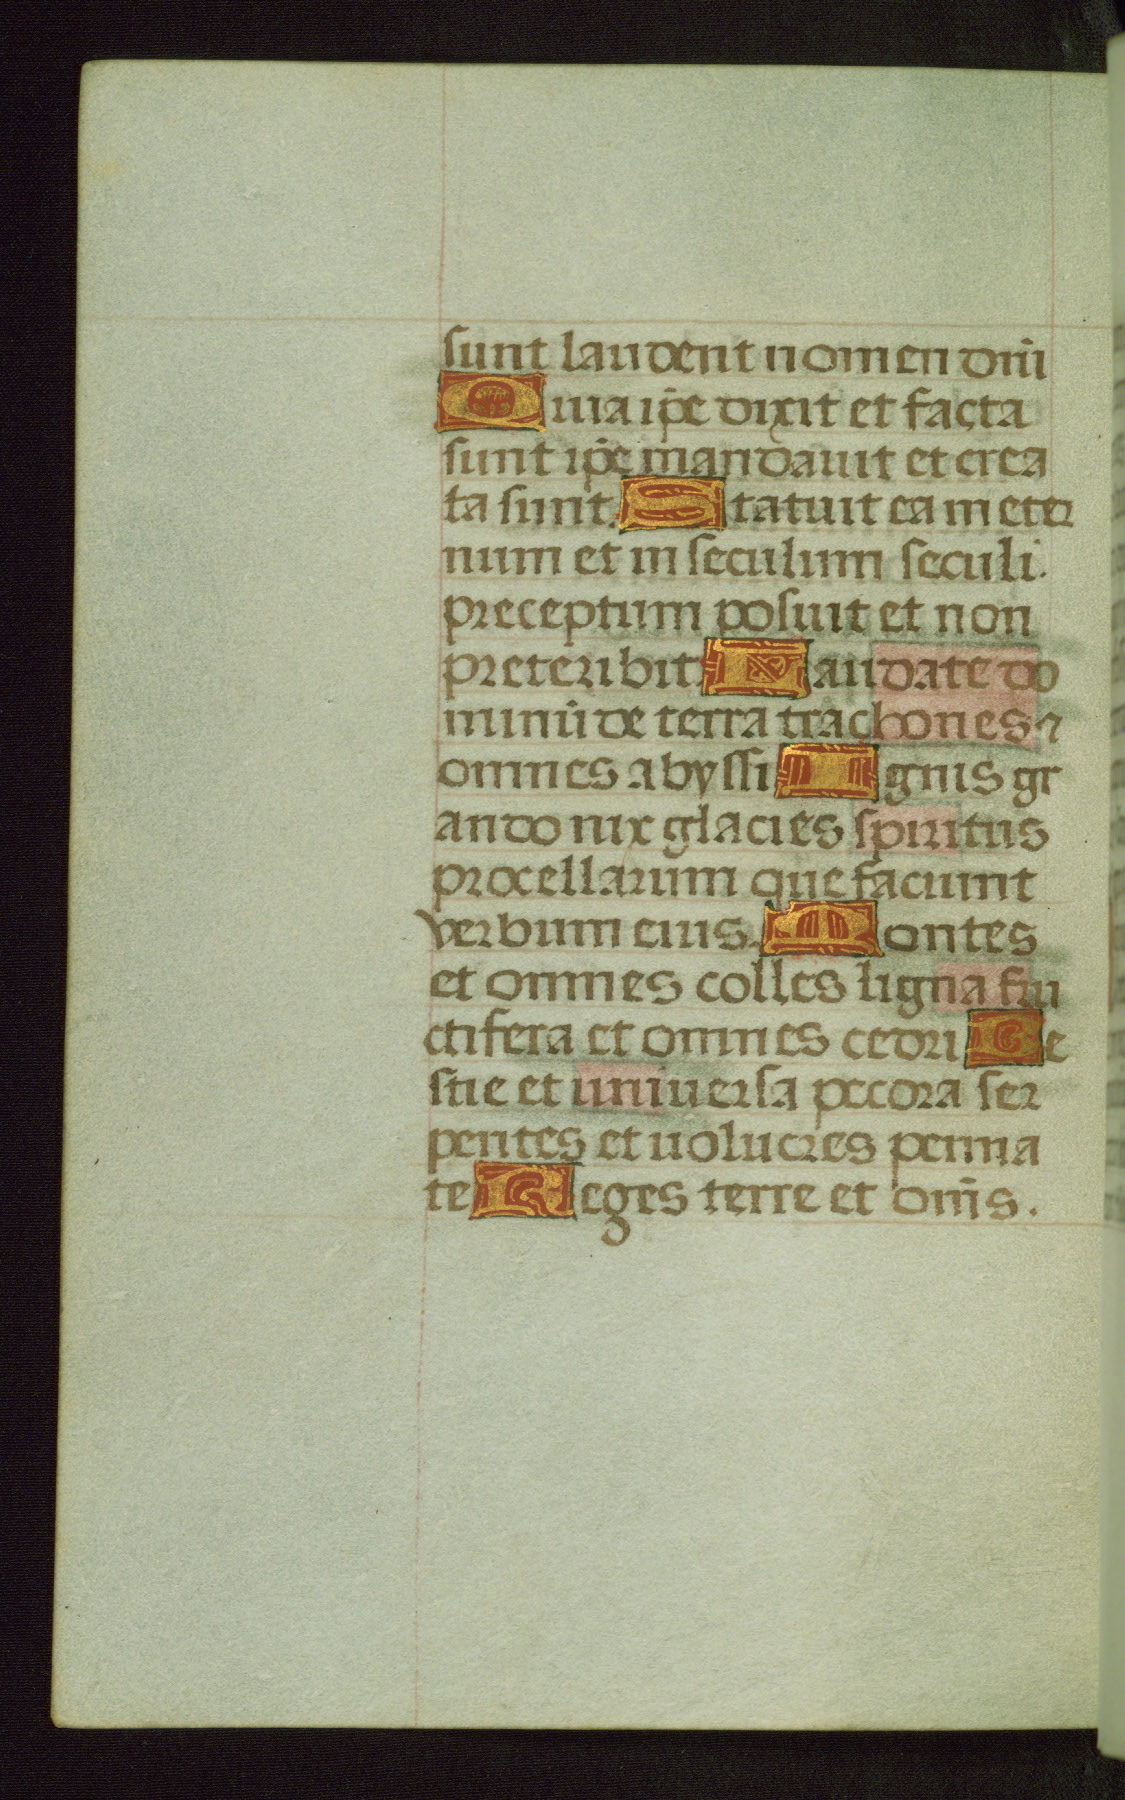 sunt laudent nomen dñi
Quia ip̃e dixit et facta
sunt ip̃e mandauit et crea
ta sunt. Statuit ea in eter
num et in seculum seculi.
preceptum posuit et non
preteribit. Laudate do
minũ de terra trachones ⁊
omnes abyssi Ignis gr
ando nix glacies spiritus
procellarum que faciunt
verbum eius. Montes
et omnes colles ligna fru
ctifera et omnes cedri Be
stie et uniuersa pecora ser
pentes et uolucres penna
te Reges terre et om̃s.